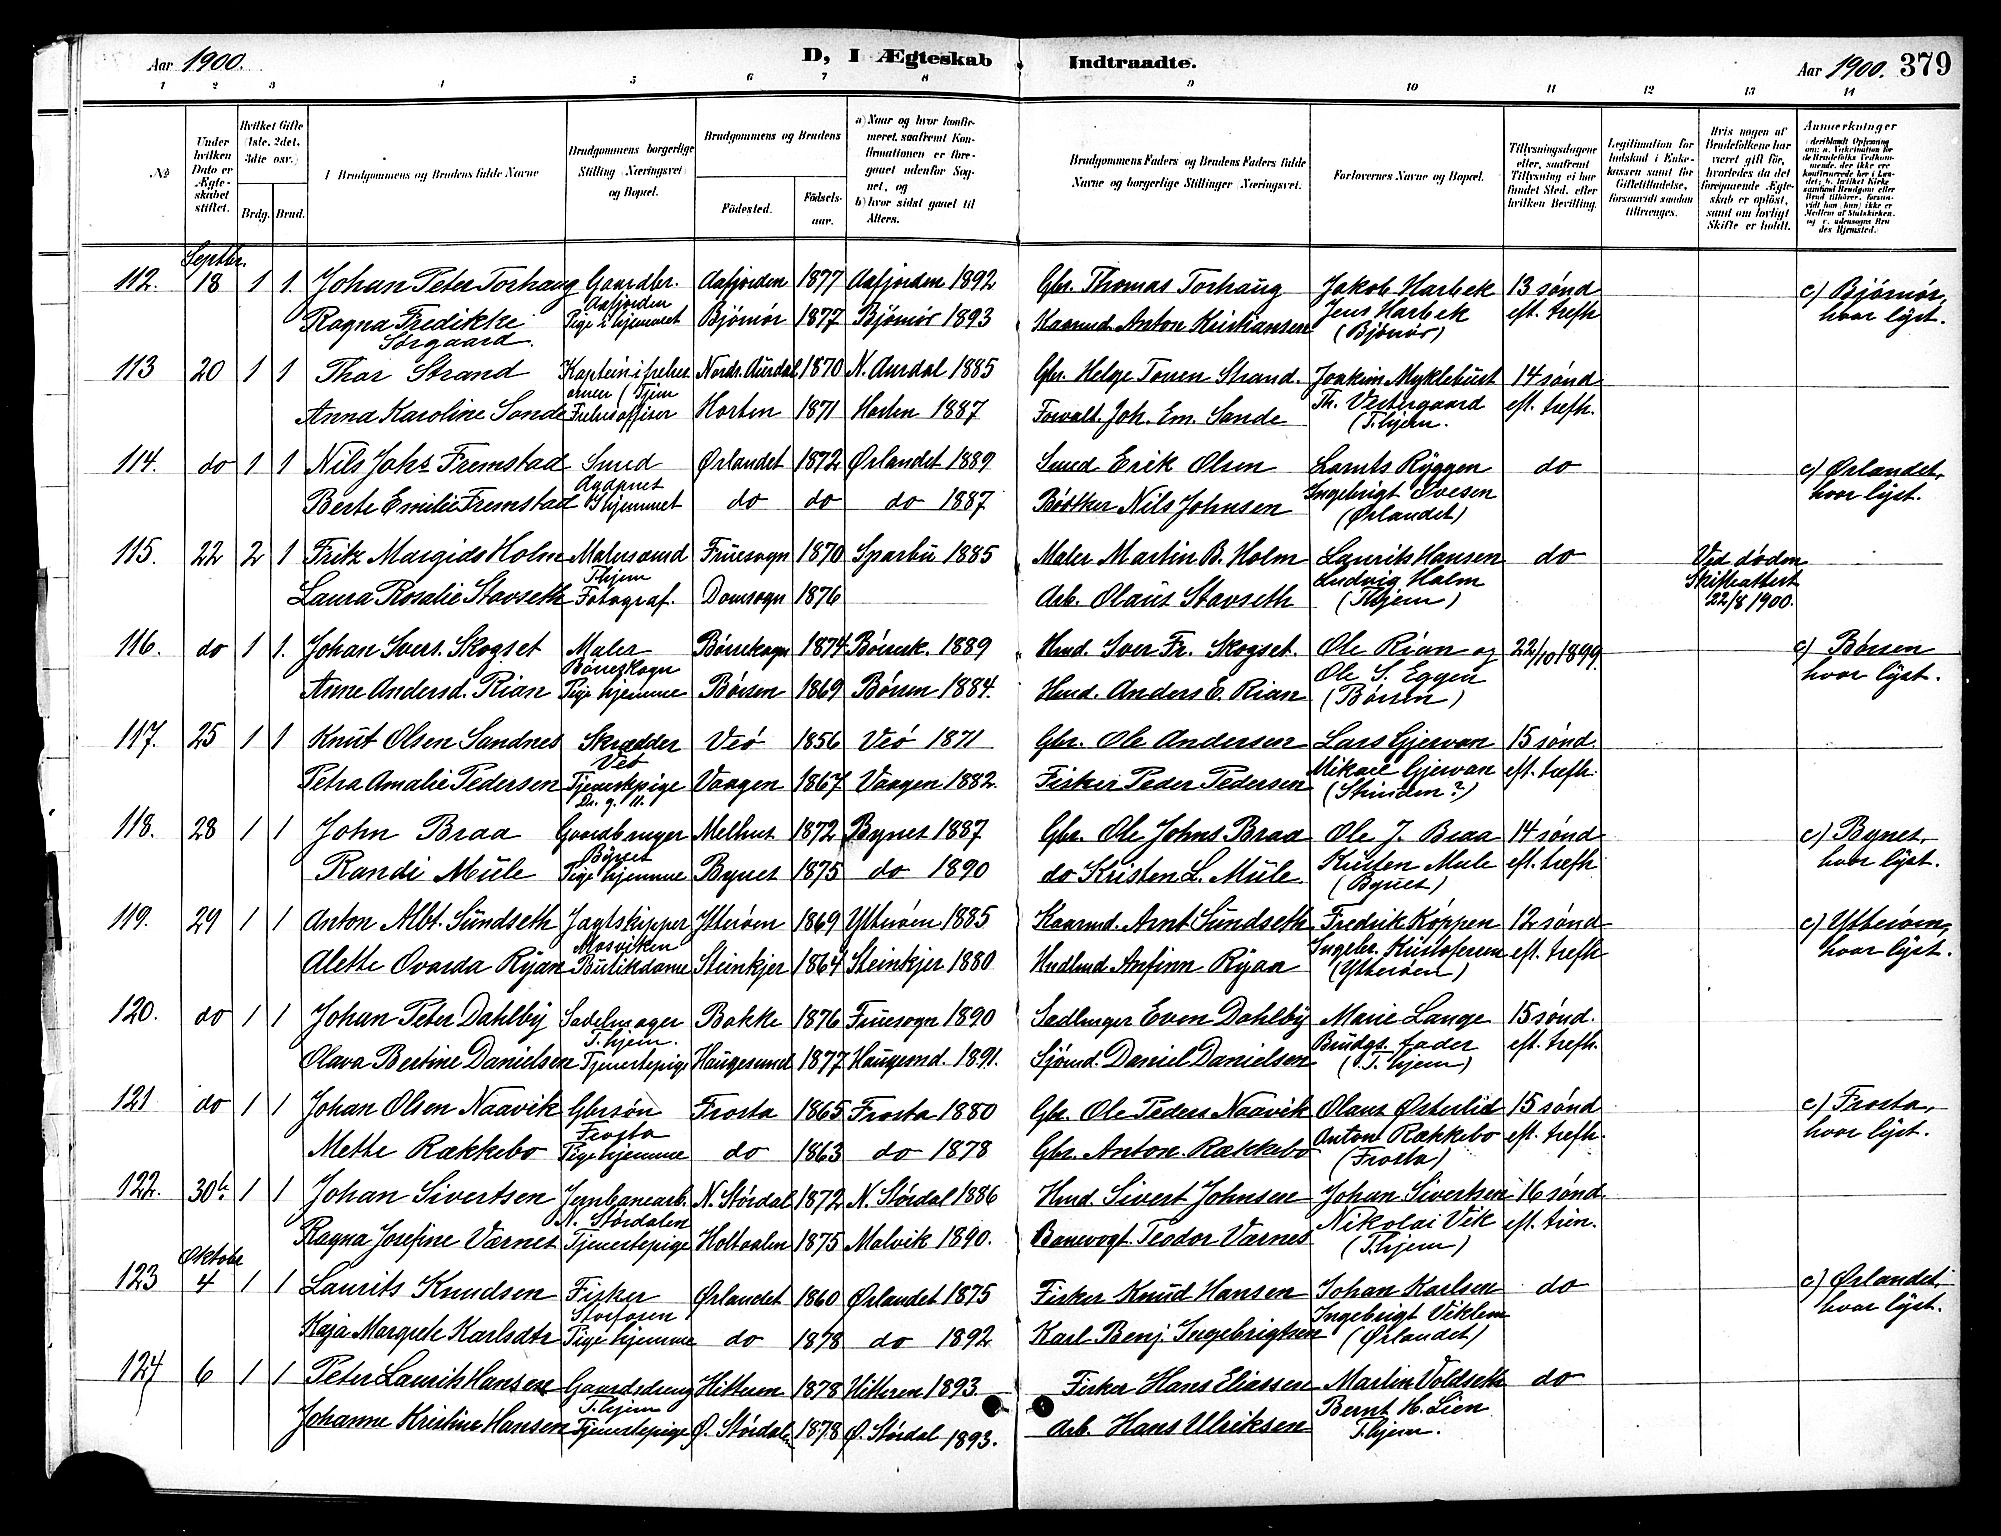 Aar 1900. D, I Ægteskab Indtraadte. Aar 1900. 379
1 2 3 4 5 6 7 8 9 10 11 12 13 14
No Under hvilken Dato er Ægteskabet stiftet. Hvilket Gifte (1ste, 2det, 3die osv.) Brdg. Brud. Brudgommens og Brudens fulde Navne Brudgommens borgerlige Stilling (Næringsvei) og Bopæl. Brudgommens og Brudens Födested. Födselsaar. a) Naar og hvor konfirmeret, saafremt Konfirmationen er foregaaet udenfor Sognet, og b) hvor sidst gaaet til Alters. Brudgommens Faders og Brudens Faders fulde Navne og borgerlige Stillinger (Næringsvei). Forlovernes Navne og Bopæl. Tillysningsdagene eller, saafremt Tillysning ei har fundet Sted, efter hvilken Bevilling. Legitimation for Indskud i Enkekassen samt for Giftetilladelse, forsaavidt saadan tiltrænges. Hvis nogen af Brudefolkene har været gift før, hvorledes da det foregaaende Ægteskab er opløst, samt om lovligt Skifte er holdt. Anmærkninger
Septbr.
112. 18 1 1. Johan Peter Torhaug Gaardbr. Aafjorden 1877 Aafjorden 1892 Gbr. Thomas Torhaug Jakob Harbek 13 sønd c) Bjørnør,
Aafjorden Jens Harbek
Ragna Fredikke Pige i hjemmet Bjørnør 1877 Bjørnør 1893 Kaarmd Anton Kristiansen (Bjønør) eft. trefh hvor lyst.
Sørgaard.
113 20 1 1 Thor Strand Kaptein i frelses Nordr. Aurdal 1870 N. Aurdal 1885 Gbr. Helge Toven Strand. Joakim Myklebust 14 sønd
armeen (Tjem Th. Vestergaard
Anna Karoline Sande Frelsesoffiser Horten 1871 Horten 1887 Forvalt. Joh. Em. Sande (T.hjem. eft. trefh.
114. do 1 1 Nils Johs Fremstad Smed Ørlandet 1872 Ørlandet 1889 Smed Erik Olsen Lornts Ryggen do c) Ørlandet,
Agdenes Ingebrigt Ovesen
Berte Emilie Fremstad I hjemmet do do do 1887 Bødtker Nils Johnsen (Ørlandet) hvor lyst.
115. 22 2 1 Fritz Margido Holm Malersvend Fruesogn 1870 Sparbu 1885 Maler Martin B. Holm Laurits Hansen do Ved døden
T.hjem Ludvig Holm Skifteattest
Laura Rosalie Stavseth Fotograf. Domsogn 1876 Arb. Olaus Stavseth (T.hjem) 22/8 1900.
116. do 1 1. Johan Svers. Skogset Maler Børseskogn 1874 Børsesk. 1889 Hmd. Sver Fr. Skogset. Ole Rian og 22/10 1899 c) Børsen
Børseskogn Ole S. Eggen
Anne Andersd. Rian Pige hjemme Børsen 1869 Børsen 1884. Hmd. Anders E. Rian (Børsen) hvor lyst.
117. 25 1 1 Knut Olsen Sandnes Skrædder Veø 1856 Veø 1871 Gbr. Ole Andersen Lars Gjervan 15 sønd.
Veø Mikael Gjervan
Petra Amalie Pedersen Tjenestepige Vaagen 1867 Vaagen 1882. Fisker Peder Pedersen (Strinden?) eft. trefh.
Dr. g. 11.
118. 28 1 1 John Braa Gaardbruger Melhus 1872 Bynes 1887 Gbr. Ole Johns Braa Ole J. Braa 14 sønd c) Bynes,
Bynes Kristen Mule
Randi Mule Pige hjemme Bynes 1875 do 1890 do Kristen L. Mule. (Bynes) eft. trefh hvor lyst.
119. 29 1 1 Anton Albt. Sundseth Jagtskipper Ytterøen 1869 Ytterøen 1885 Kaarmd. Arnt Sundseth Fredrik Køppen 12 sønd c) Ytterøen,
Mosviken Ingebr. Kristofersen
Alette Ovarda Ryan Butikdame Steinkjer 1864 Steinkjer 1880 Hndlmd Anfinn Ryan (Ytterøen) eft. trefh hvor lyst.
120. do 1 1 Johan Peter Dahlby Sadelmager Bakke 1876 Fruesogn 1890 Sadlmager Even Dahlby Marie Lange 15 sønd.
T.hjem. Brudgs. fader
Olava Bertine Danielsen Tjenestepige Haugesund 1877 Haugesnd. 1891. Sjømd. Daniel Danielsen (T.hjem) eft. trefh.
121 do 1 1 Johan Olsen Naavik Gbrsøn Frosta 1865 Frosta 1880 Gbr. Ole Peders Naavik Olaus Østerlid 15 sønd c) Frosta,
Frosta Anton Rækkebo
Mette Rækkebo Pige hjemme do 1863 do 1878 Gbr. Anton Rækkebo (Frosta) eft. trefh. hvor lyst.
122. 30te 1 1 Johan Sivertsen Jernbanearb. N. Størdal 1872 N. Størdal 1886 Hmd. Sivert Johnsen Johan Sivertsen 16 sønd
N. Størdalen Nikolai Vik
Ragna Josefine Værnes Tjenestepige Holtaalen 1875 Malvik 1890. Banevogt Teodor Værnes (T.hjem) eft. trin.
Oktober
123 4 1 1 Laurits Knudsen Fisker Ørlandet 1860 Ørlandet 1875 Fisker Knud Hansen Johan Karlsen do c) Ørlandet,
Storfosen Ingebrigt Viklem
Kaja Margreth Karlsdtr Pige hjemme do 1878 do 1892 Karl Benj. Ingebrigtsen (Ørlandet) hvor lyst.
124 6 1 1 Peter Laurits Hansen Gaardsdreng Hitteren 1878 Hitteren 1893 Fisker Hans Eliassen Martin Voldseth do
T.hjem Bernt H. Lien
Johanne Kristine Hansen Tjenestepige Ø. Størdalen 1878 Ø. Størdal 1893. Arb. Hans Ulriksen T.hjem.